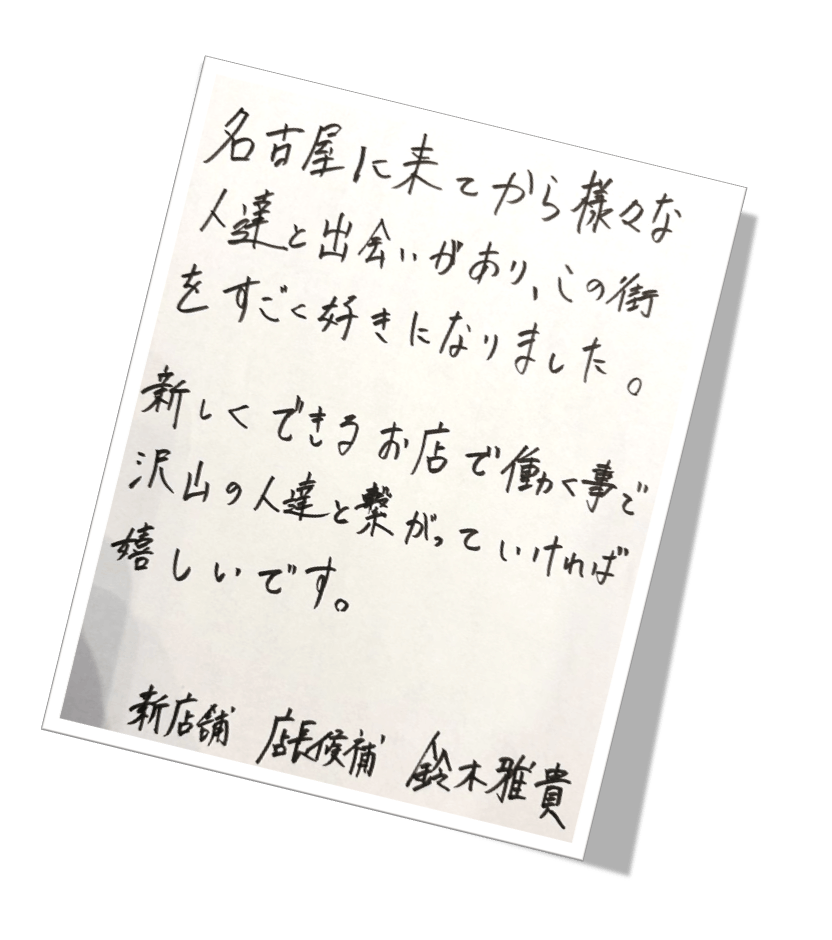 名古屋に来てから様々な
人達と出会いがあり、この街
をすごく好きになりました。
新しくできるお店で働く事で
沢山の人達と繋がっていければ
嬉しいです。
新店舗 店長候補 鈴木雅貴